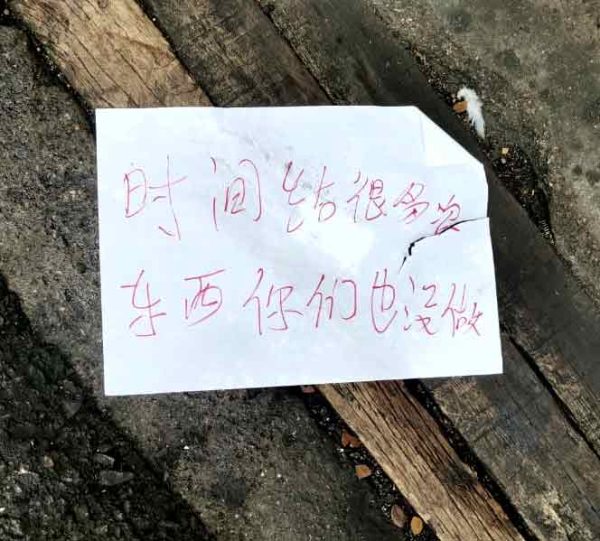 时间给很多次
东西你们也没做